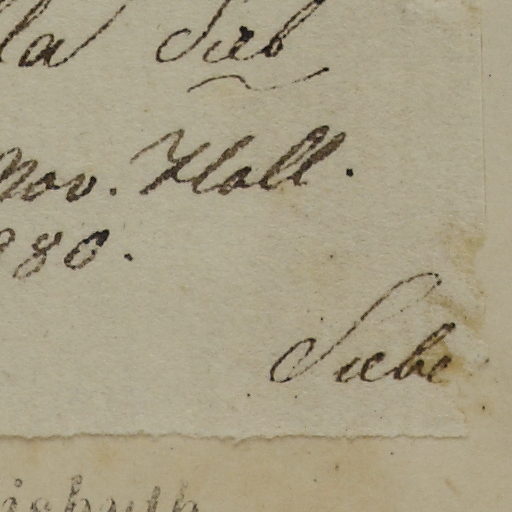 la Sieb
Nov. Holl.
980.
Siebe